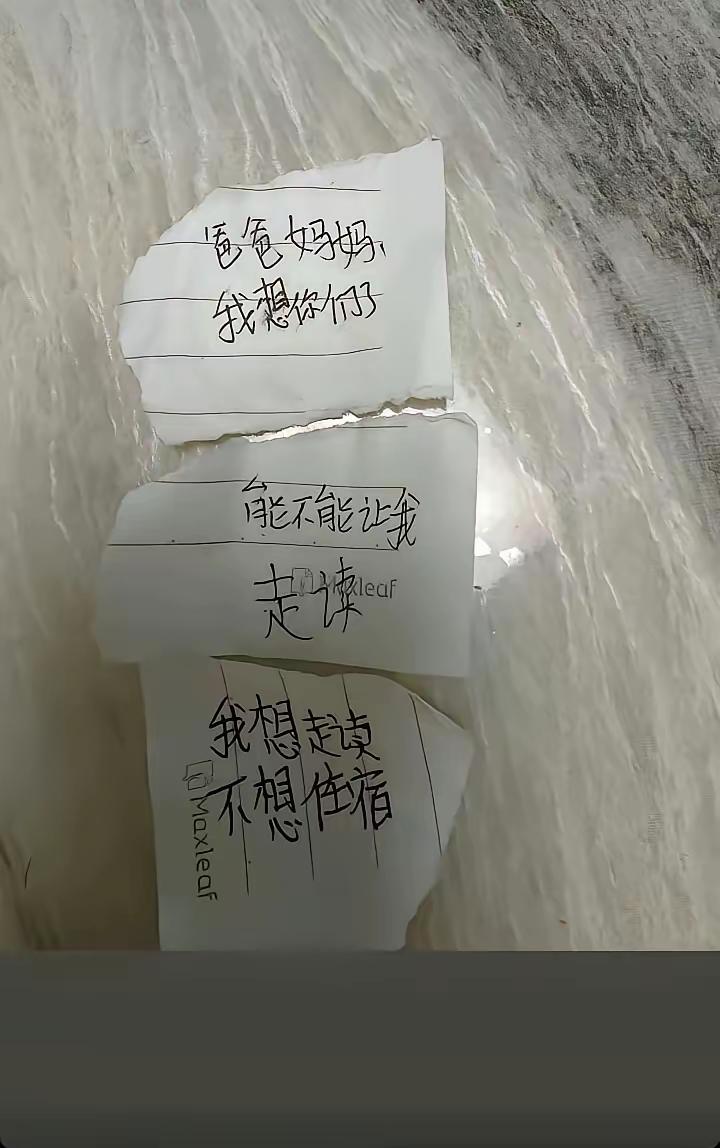 爸爸妈妈、
我想你们了
能不能让我
走读
Maxleaf
我想走读
不想住宿
Maxleaf